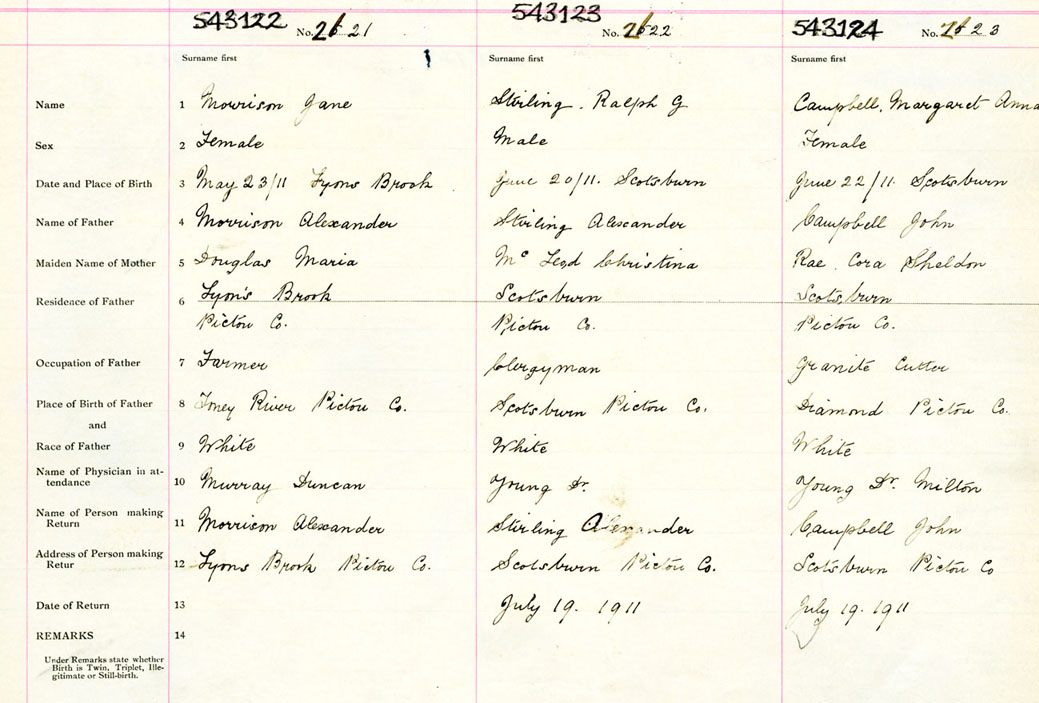 543122 No. 2621
543123 No. 2622
543124 No. 2623
Surname first
Surname first
Surname first
Name 1 Morrison Jane
Stirling. Ralph G
Campbell, Margaret Anna
Sex 2 Female
Male
Female
Date and Place of Birth 3 May 23/11 Lyons Brook
June 20/11. Scotsburn
June 22/11. Scotsburn
Name of Father 4 Morrison Alexander
Stirling Alexander
Campbell John
Maiden Name of Mother 5 Douglas Maria
Mc Leod Christina
Rae. Cora Sheldon
Residence of Father 6 Lyon's Brook
Scotsburn
Scotsburn
Pictou Co.
Pictou Co.
Pictou Co.
Occupation of Father 7 Farmer
Clergyman
Granite Cutter
Place of Birth of Father 8 Toney River Pictou Co.
Scotsburn Pictou Co.
Diamond Pictou Co.
and
Race of Father 9 White
White
White
Name of Physician in at-
tendance 10 Murray Duncan
Young Dr.
Young Dr. Milton
Name of Person making
Return 11 Morrison Alexander
Stirling Alexander
Campbell John
Address of Person making
Retur 12 Lyons Brook Pictou Co.
Scotsburn Pictou Co.
Scotsburn Pictou Co
Date of Return 13
July 19. 1911
July 19. 1911
REMARKS 14
Under Remarks state whether
Birth is Twin, Triplet, Ille-
gitimate or Still-birth.